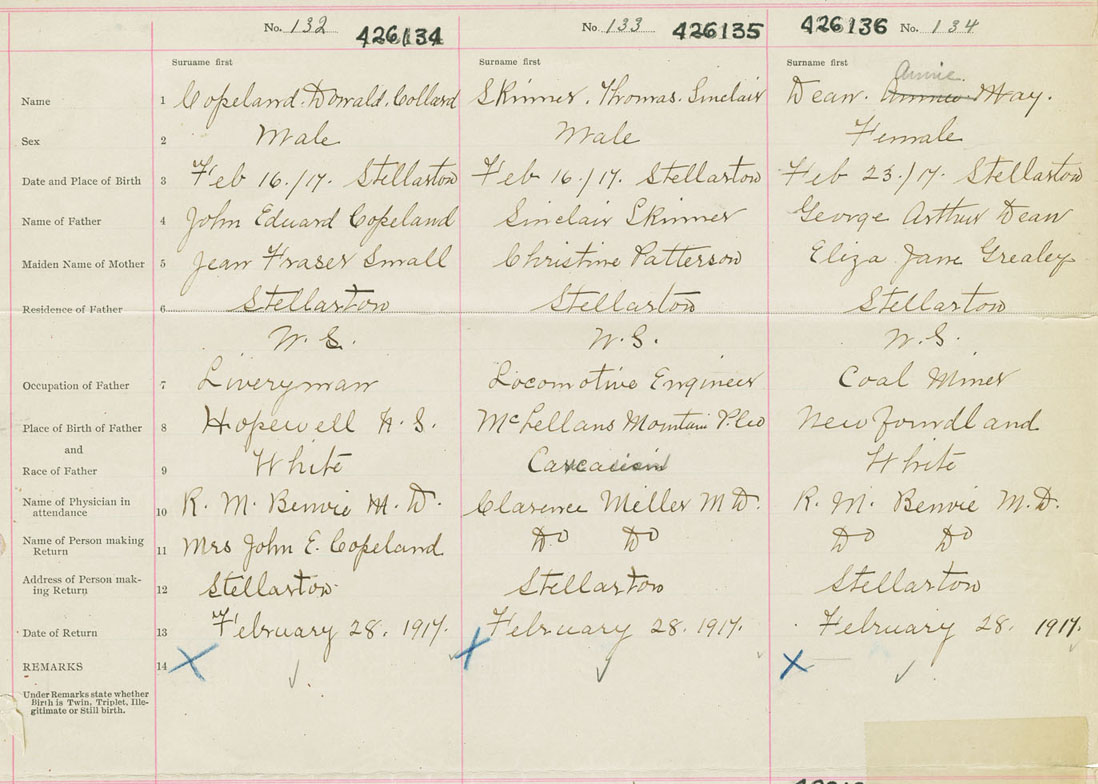 No. 132 426134 No. 133 426135 426136 No. 134
Surname first Surname first Surname first
Annie
Name 1 Copeland. Donald. Collard Skinner. Thomas. Sinclair Dean. May.
Sex 2 Male Male Female
Date and Place of Birth 3 Feb 16./17. Stellarton Feb 16/17. Stellarton Feb 23./17. Stellarton
Name of Father 4 John Edward Copeland Sinclair Skinner George Arthur Dean
Maiden Name of Mother 5 Jean Fraser Small Christine Patterson Eliza Jane Grealey
Residence of Father 6 Stellarton Stellarton Stellarton
N.S. N.S. N.S.
Occupation of Father 7 Liveryman Locomotive Engineer Coal Miner
Place of Birth of Father 8 Hopewell N.S. McLellans Mountain Newfoundland
and
Race of Father 9 White White
Name of Physician in
attendance 10 R. M. Benvie M.D. Clarence Miller M D. R. M. Benvie M.D.
Name of Person making
Return 11 Mrs John E. Copeland Do Do Do Do
Address of Person mak-
ing Return 12 Stellarton Stellarton Stellarton
Date of Return 13 February 28. 1917. February 28. 1917. February 28. 1917.
REMARKS 14
Under Remarks state whether
Birth is Twin, Triplet, Ille-
gitimate or Still birth.